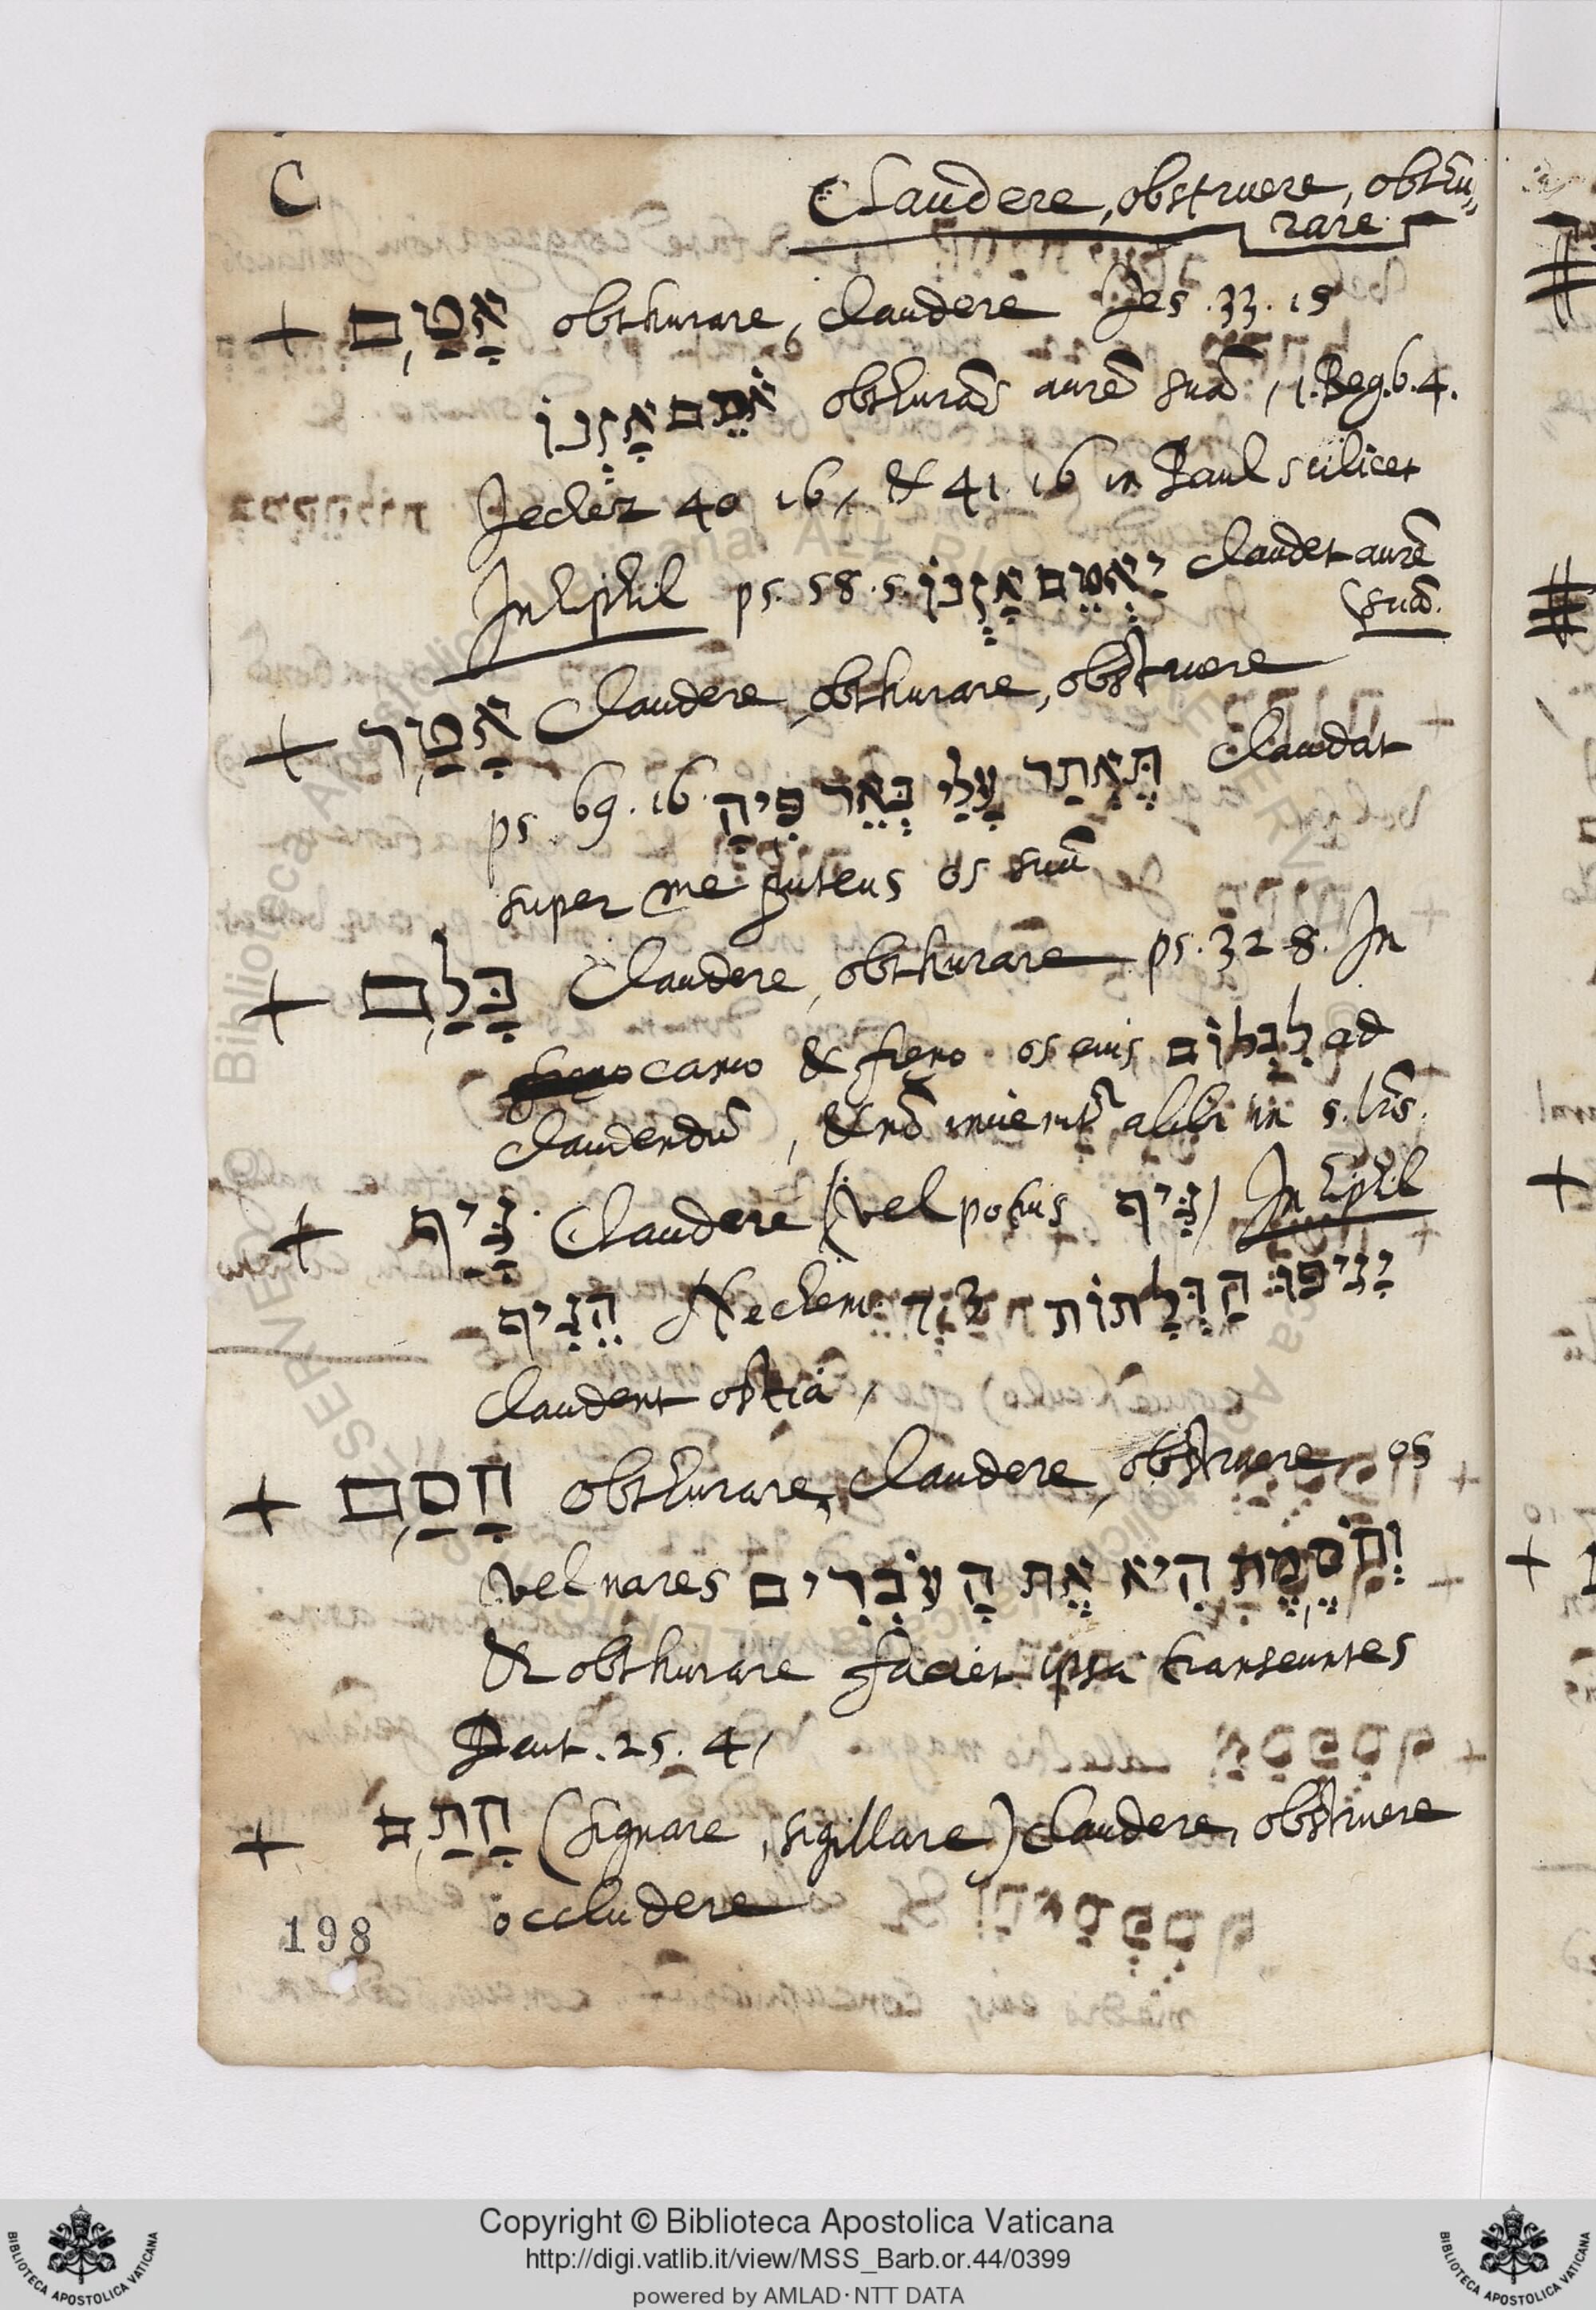 C
Claudere, obstruere, obthu„
rare
+ אָטַם obthurare, claudere Jes. 33. 15
אֹטֵם אָזְנוֹ obthurās aurē suā, 1. Reg. 6. 4.
Jechez 40 16, & 41. 16 in Paul scilicet
In Hiphil ps. 58. 5. יַאְטֵם אָזְנוֹ claudet aurē
(suā.
+ אָטַר Claudere, obthurare, obstruere
ps. 69. 16. תֶּאְתַר עָלַי בְּאֵר פִּיהָ Claudat
super me puteus os suū
+ בָּלַם Claudere, obthurare ps. 32 8. In
camo & freno os eius לִבְלוֹם ad
claudendū, & nō invenitr̄ alibi in s. lrīs.
+ נִּיף Claudere (vel potius נִּיף) In Hiphil
הֵנִיף Nechem יָנִיפוּ הַדְּלָתוֹת
Claudent ostia,
+ חָסַם obthurare, claudere, obstruere os
vel nares וְחֹסֶמֶת הִיא אֶת הָעֹבְרִים
& obthurare faciet ipsa transeuntes
Deut. 25. 4,
+ חָתַם (signare, sigillare) claudere, obstruere
occludere
198
Copyright © Biblioteca Apostolica Vaticana
http://digi.vatlib.it/view/MSS_Barb.or.44/0399
powered by AMLAD·NTT DATA
BIBLIOTECA APOSTOLICA VATICANA
BIBLIOTECA APOSTOLICA VATICANA